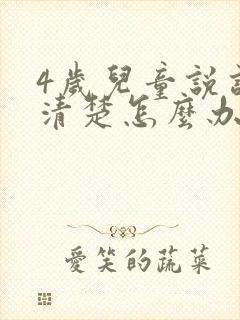 4歲兒童說
清楚怎麼办
愛笑的蔬菜